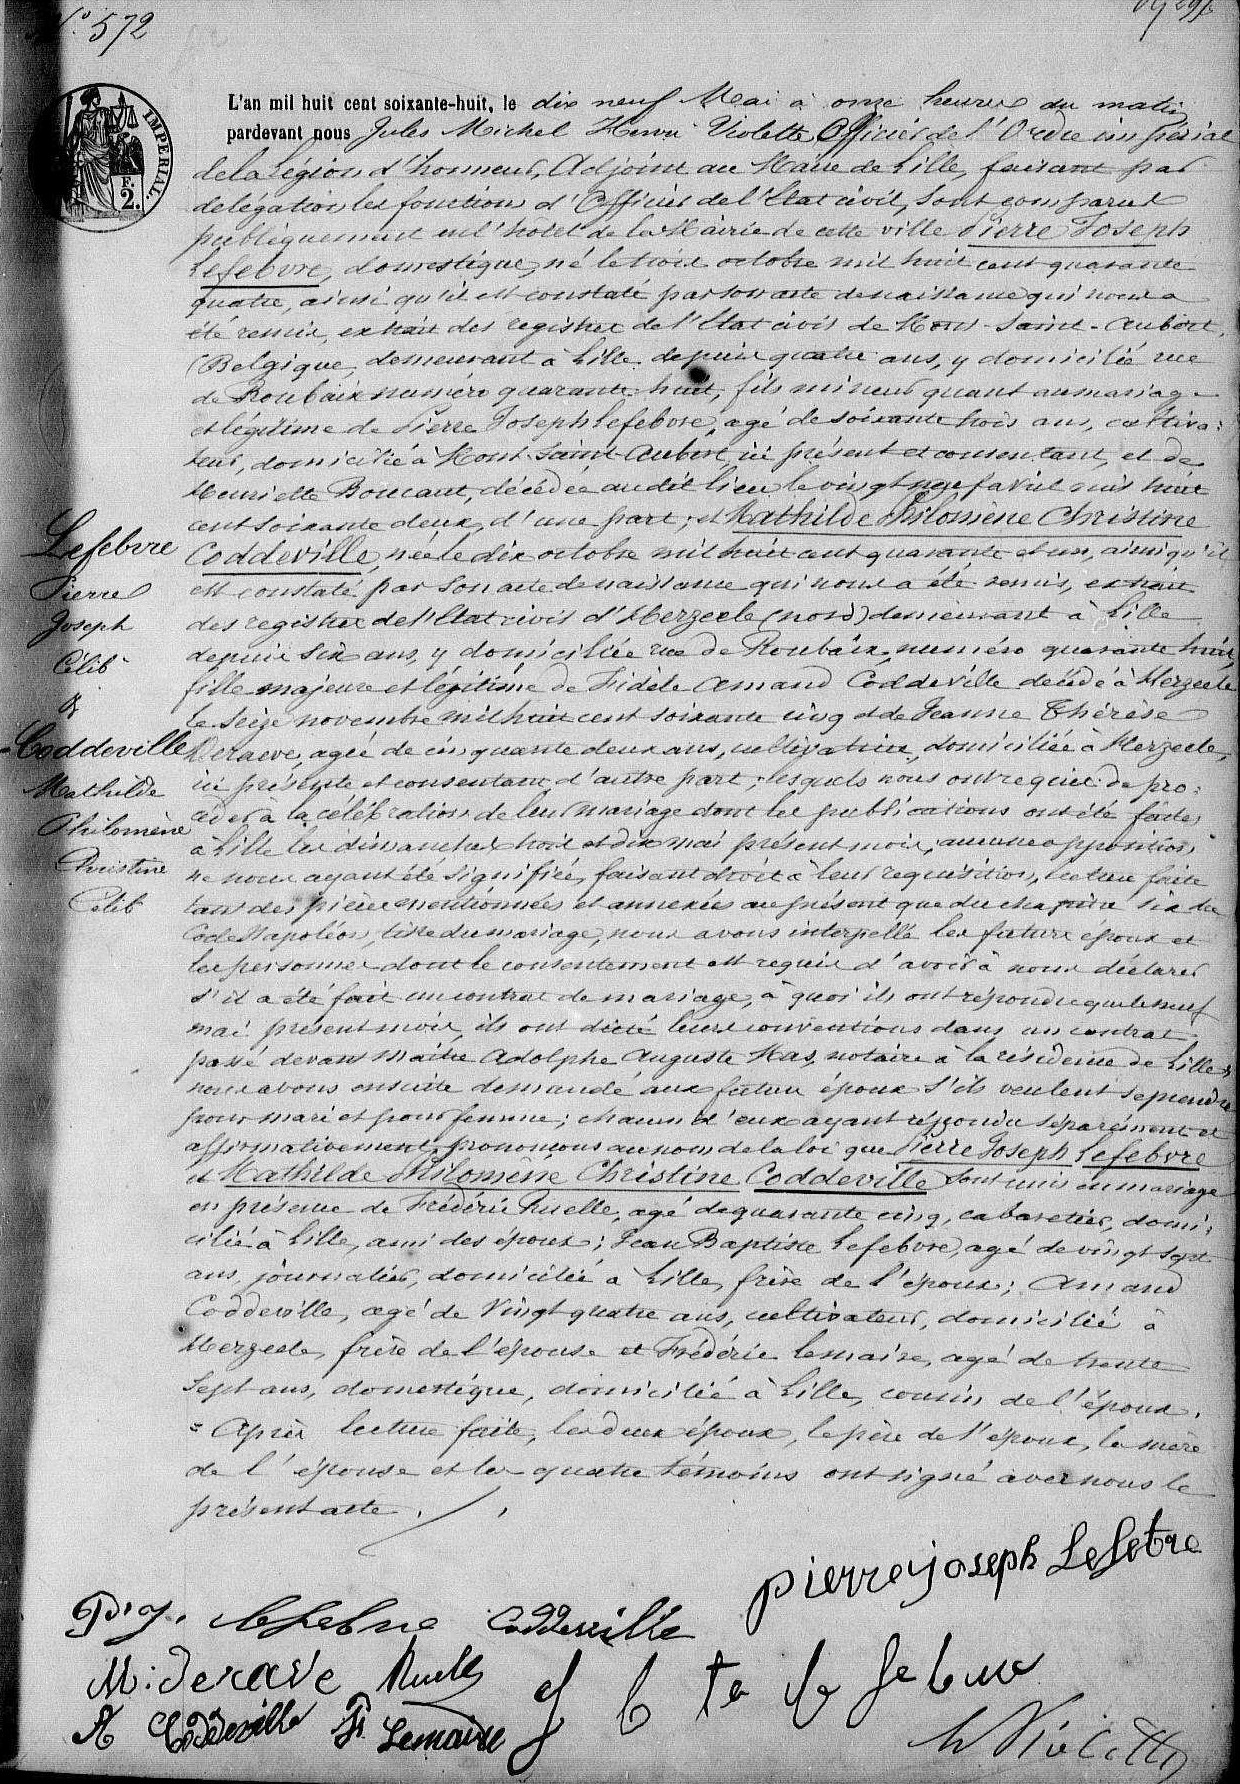 N° 572
IMPERIAL.
F.
2.
L'an mil huit cent soixante-huit, le dix neuf Mai à onze heures du matin
pardevant nous Jules Michel Henri Violette, Officier de l'Ordre impérial
de la légion d'honneur, Adjoint au Maire de Lille, faisant par
délégation les fonctions d'Officier de l'Etat civil, sont comparus
publiquement en l'hôtel de la Mairie de cette ville Pierre Joseph
Lefebvre, domestique, né le trois octobre mil huit cent quarante
quatre, ainsi qu'il est constaté par son acte de naissance qui nous a
été remis, extrait des registres de l'Etat civil de Mont-Saint-Aubert,
(Belgique, demeurant à Lille depuis quatre ans, y domicilié rue
de Roubaix numéro quarante huit, fils mineur quant au mariage
et légitime de Pierre Joseph Lefebvre, agé de soixante trois ans, cultiva-
teur, domicilié à Mont-Saint-Aubert, ici présent et consentant, et de
Henriette Boucaut, décédée audit lieu le vingt neuf avril mil huit
cent soixante deux, d'une part; et Mathilde Philomène Christine
Coddeville, née le dix octobre mil huit cent quarante et un, ainsi qu'il
est constaté par son acte de naissance qui nous a été remis, extrait
des registres de l'Etat civil d'Herzeele (nord) demeurant à Lille
depuis six ans, y domiciliée rue de Roubaix, numéro quarante huit,
fille majeure et légitime de Fidèle Amand Coddeville décédé à Herzeele
le seize novembre mil huit cent soixante cinq et de Jeanne Thérèse
Deraeve, agée de cinquante deux ans, cultivatrice, domiciliée à Herzeele,
ici présente et consentant, d'autre part; lesquels nous ont requis de pro-
céder à la célébration de leur mariage dont les publications ont été faites
à Lille les dimanches trois et dix mai présent mois; aucune opposition
ne nous ayant été signifiée, faisant droit à leur réquisition, lecture faite
tant des pièces mentionnées et annexées au présent que du chapitre six du
Code Napoléon, titre du mariage, nous avons interpellé les futurs époux et
les personnes dont le consentement est requis d'avoir à nous déclarer
s'il a été fait un contrat de mariage, à quoi ils ont répondu que le neuf
mai présent mois, ils ont dicté leurs conventions dans un contrat
passé devant maître Adolphe Auguste Mas, notaire à la résidence de Lille;
nous avons ensuite demandé aux futurs époux s'ils veulent se prendre
pour mari et pour femme; chacun d'eux ayant répondu séparément et
affirmativement, prononçons au nom de la loi que Pierre Joseph Lefebvre
et Mathilde Philomène Christine Coddeville sont unis en mariage
en présence de Frédéric Ruelle, agé de quarante cinq, cabaretier, domi-
cilié à Lille, ami des époux; Jean Baptiste Lefebvre, agé de vingt sept
ans, journalier, domicilié à Lille, frère de l'époux; Amand
Coddeville, agé de vingt quatre ans, cultivateur, domicilié à
Herzeele, frère de l'épouse et Frédéric Lemaire, agé de trente
sept ans, domestique, domicilié à Lille, cousin de l'époux.
= Après lecture faite, les deux époux, le père de l'époux, la mère
de l'épouse et les quatre témoins ont signé avec nous le
présent acte.
Lefebvre
Pierre
Joseph
Célib
&
Coddeville
Mathilde
Philomène
Christine
Célib
pierre joseph Lefebvre
P. J. Lefebvre Coddeville
M: deraeve Ruelle J bte lefebvre
A Coddeville Fr Lemaire
h Violette